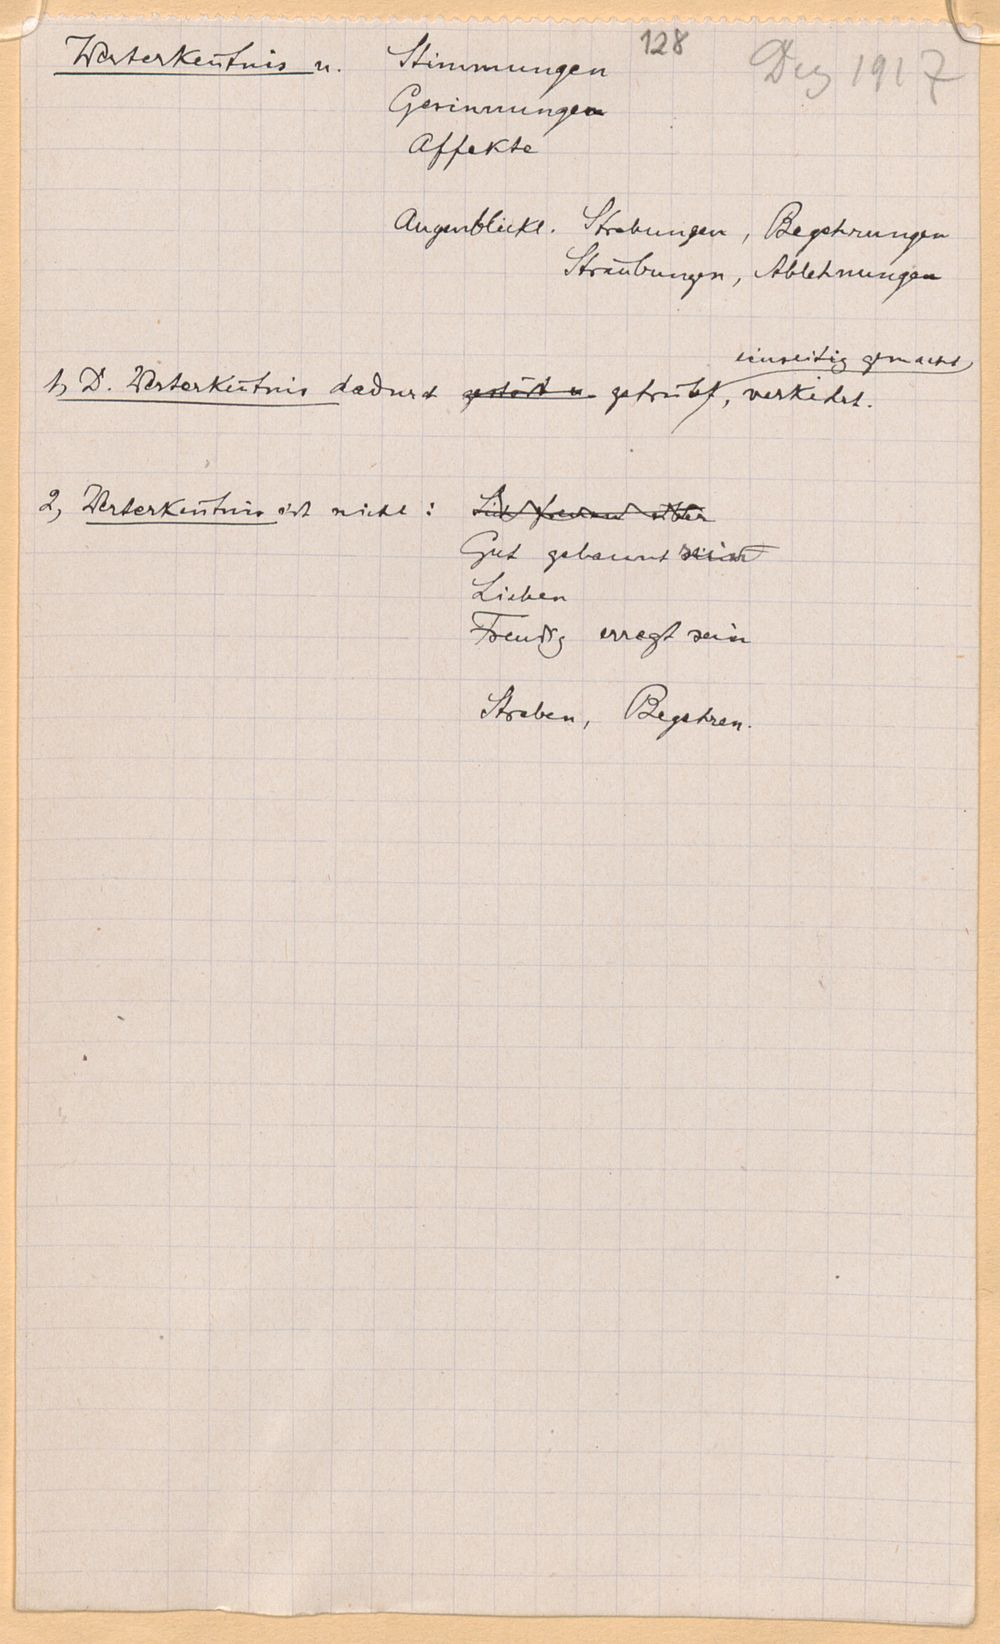 128
Dez 1917
Werterkenntnis u. Stimmungen
Gesinnungen
Affekte
Augenblickl. Strebungen, Begehrungen
Sträubungen, Ablehnungen
einseitig gemacht
1, D. Werterkenntnis dadurch gestört u. getrübt, verkehrt.
2, Werterkenntnis ist nicht: Sich freuen über
Gut gelaunt sein
Lieben
Freudig erregt sein
Streben, Begehren.